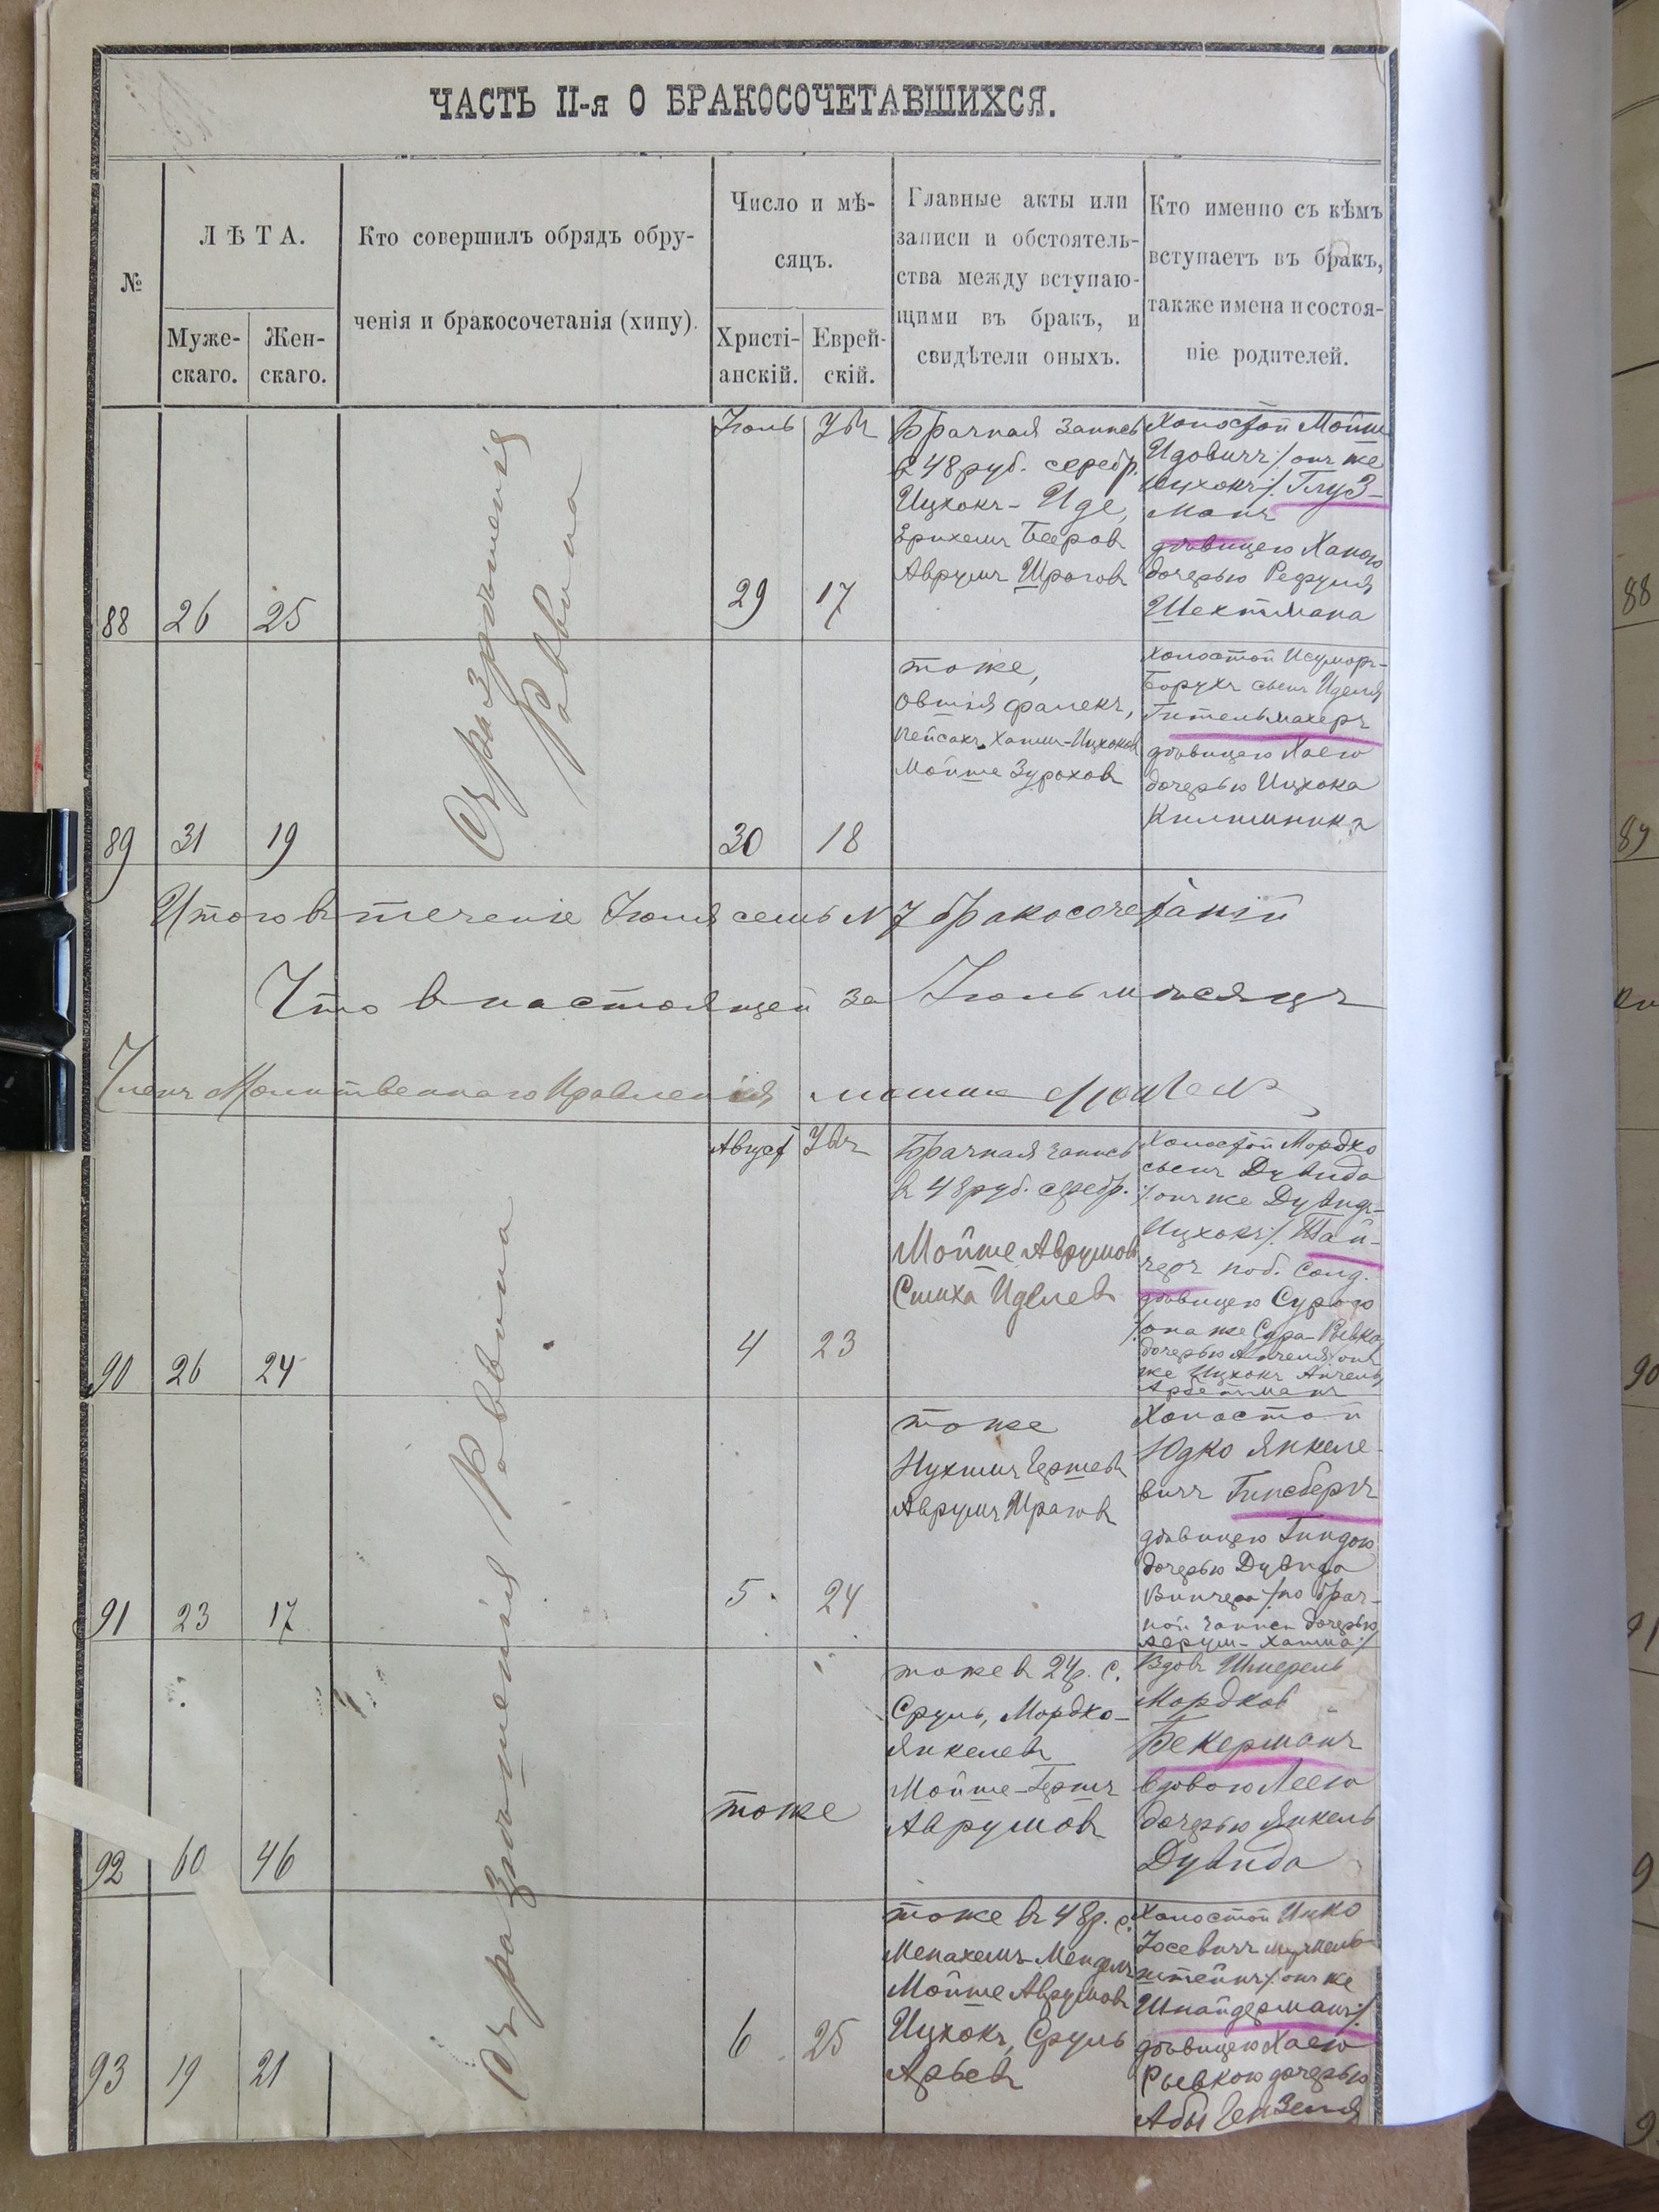 ЧАСТЬ II-я О БРАКОСОЧЕТАВШИХСЯ.
№
ЛѢТА.
Муже-
скаго.
Жен-
скаго.
Кто совершилъ обрядъ обру-
ченія и бракосочетанія (хипу).
Число и мѣ-
сяцъ.
Христі-
анскій.
Еврей-
скій.
Главные акты или
записи и обстоятель-
ства между вступаю-
щими въ бракъ, и
свидѣтели оныхъ.
Кто именно съ кѣмъ
вступаетъ въ бракъ,
также имена и состоя-
ніе родителей.
Съ разрѣшенія
Раввина
88
26
25
Іюль
29
17
Брачная запись
в 48 руб. серебр.
Ицхокъ - Иде,
Бееров
Аврумъ Шрагов
Холостой Мойше
Идовичъ /: онъ же
Ицхокъ :/ Глуз-
манъ
дѣвицею Ханою
дочерью Рефуля
Шехтмана
89
31
19
30
18
тоже,
Овшія фалекъ,
Пейсахъ, Хаимъ-Ицхоков
Мойше Зурахов
Холостой
Борухъ сынъ Иделя
Гительмахеръ
дѣвицею Хаею
дочерью Ицхока
Килимника
Итого в теченіе Іюля семь N 7 бракосочетаній
Что в настоящей за Іюль мѣсяцъ
Членъ Молитвеннаго Правленія
Съ разрѣшенія Раввина
90
26
24
Август
4
23
Брачная запись
в 48 руб. серебр.
Мойше Аврумов
Симха Иделев
Холостой Мордко
сынъ Дувида
/: онъ же Дувидъ-
Ицхокъ :/ Тай-
черъ
дѣвицею Сурою
/: она же Сура-Ривка
дочерью Анчеля /: онъ
же Ицхокъ Анчель
91
23
17
5
24
тоже
Нухимъ Гершев
Аврумъ Шрагов
Холостой
Юдко Янкеле-
вичъ Гинсбергъ
дѣвицею Гиндою
дочерью Дувида
Винчера /: по брач-
ной записи дочерью
Аврум-Хаима :/
92
60
46
тоже
тоже в 24 р. с.
Сруль, Мордко-
Янкелев
Мойше-Гершъ
Аврумов
Вдовъ Шмерель
Мордков
Бекерманъ
вдовою Леею
дочерью Янкель
Дувида
93
19
21
6
25
тоже в 48 р. с.
Менахемъ-Мендель
Мойше Аврумов
Ицхокъ, Сруль
Арьев
Холостой Ицко
Іосевичъ
штейнъ /: онъ же
Шнайдерманъ :/
дѣвицею Хаею
Рывкою дочерью
Абы Гензеля
88
90